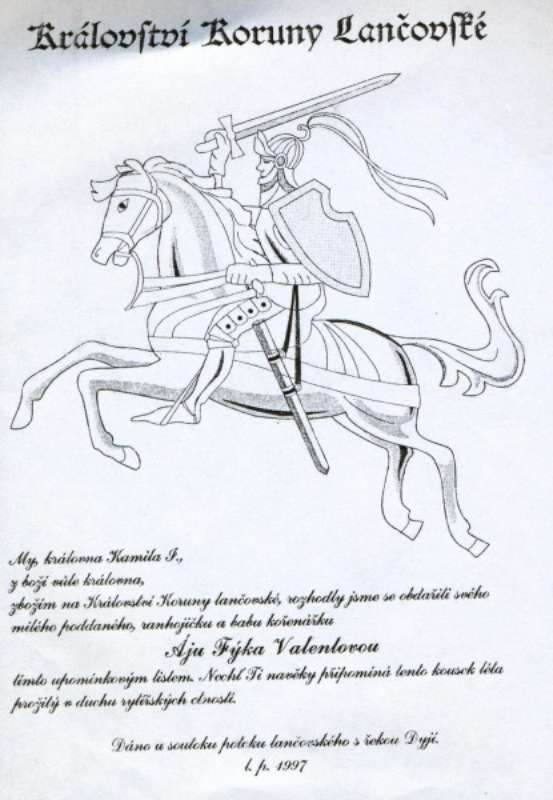 Královſtví Koruny Lančovſké
My, královna Kamila I.,
z boží vůle královna,
zbožím na Království Koruny lančovské, rozhodly jsme se obdařiti svého
milého poddaného, ranhojičku a babu kořenářku
Áju Fýka Valentovou
tímto upomínkovým listem. Nechť Ti navěky připomíná tento kousek léta
prožitý v duchu rytířských ctností.
Dáno u soutoku potoku lančovského s řekou Dyjí.
l. p. 1997